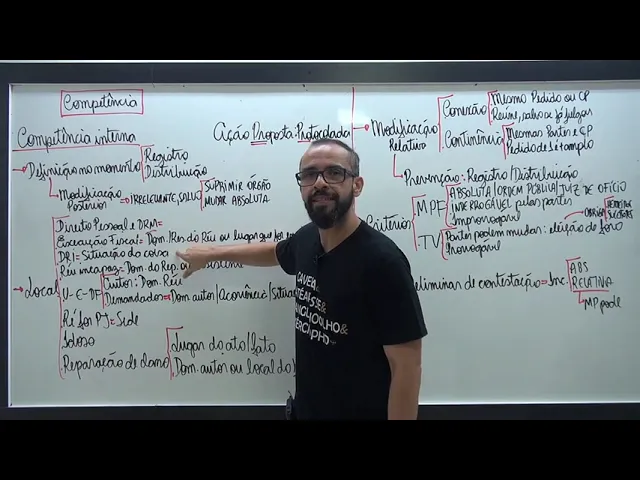 Competência
Competência interna
Definição no momento
Registro
Distribuição
Modificação
Posterior
= IRRELEVANTE, SALVO
SUPRIMIR ÓRGÃO
MUDAR ABSOLUTA
Local
Direito Pessoal e DRM=
Execução Fiscal= Dom./Res. do Réu ou lugar
DRI= Situação da coisa
Réu incapaz= Dom. do Rep. ou
U-E-DF
Autor: Dom. Réu
Demandado= Dom autor/Ocorrência/Situa
Ré for PJ= Sede
Idoso
Reparação de dano
Lugar do ato/fato
Dom. autor ou local do
Ação Proposta: Protocolada
Modificação
Relativa
Conexão
Mesmo Pedido ou CP
Reúne, salvo se já julgar
Continência
Mesmas Partes e CP
Pedido de 1 é + amplo
Prevenção: Registro/Distribuição
Critérios
MPF
ABSOLUTA/ORDEM PÚBLICA/JUIZ DE OFÍCIO
INERROGÁVEL pelas partes
Improrrogável
TV
Partes podem mudar: eleição de foro
OBRIGA
HERDEIROS
SUCESSORES
Prorrogável
Preliminar de contestação= Inc.
ABS
RELATIVA
MP pode